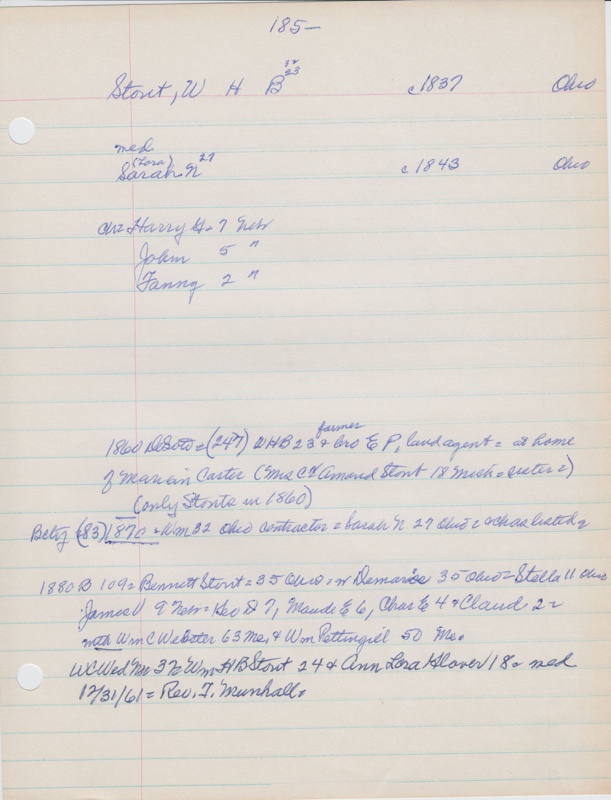 185-
32
23
Stout, W H B c1837 Ohio
med
(Lora) 27
Sarah N c1843 Ohio
ch= Harry G. 7 Nebr
John 5 "
Fanny 2 "
farmer
1860 DeSoto = (247) WHB 23 & bro E P, land agent = at home
of Marion Carter (Mrs C & Amand Stout 18 Mich = sister =)
(only Stouts in 1860)
(83) 1870 = Wm 32 Ohio contractor = Sarah N 27 Ohio = & ch as listed =
1880 B 109 = Bennett Stout = 35 Ohio = w 35 Ohio = Stella 11 Ohio
James V 9 Nebr = Geo D 7, Maude E 6, Chas E 4 & Claud 2 =
with Wm C Webster 63 Me, & Wm Pettingiel 50 Me.
WC Wed Wm H B Stout 24 & Ann Lora Glover 18 = med
12/31/61 = Rev. T. Munhall.